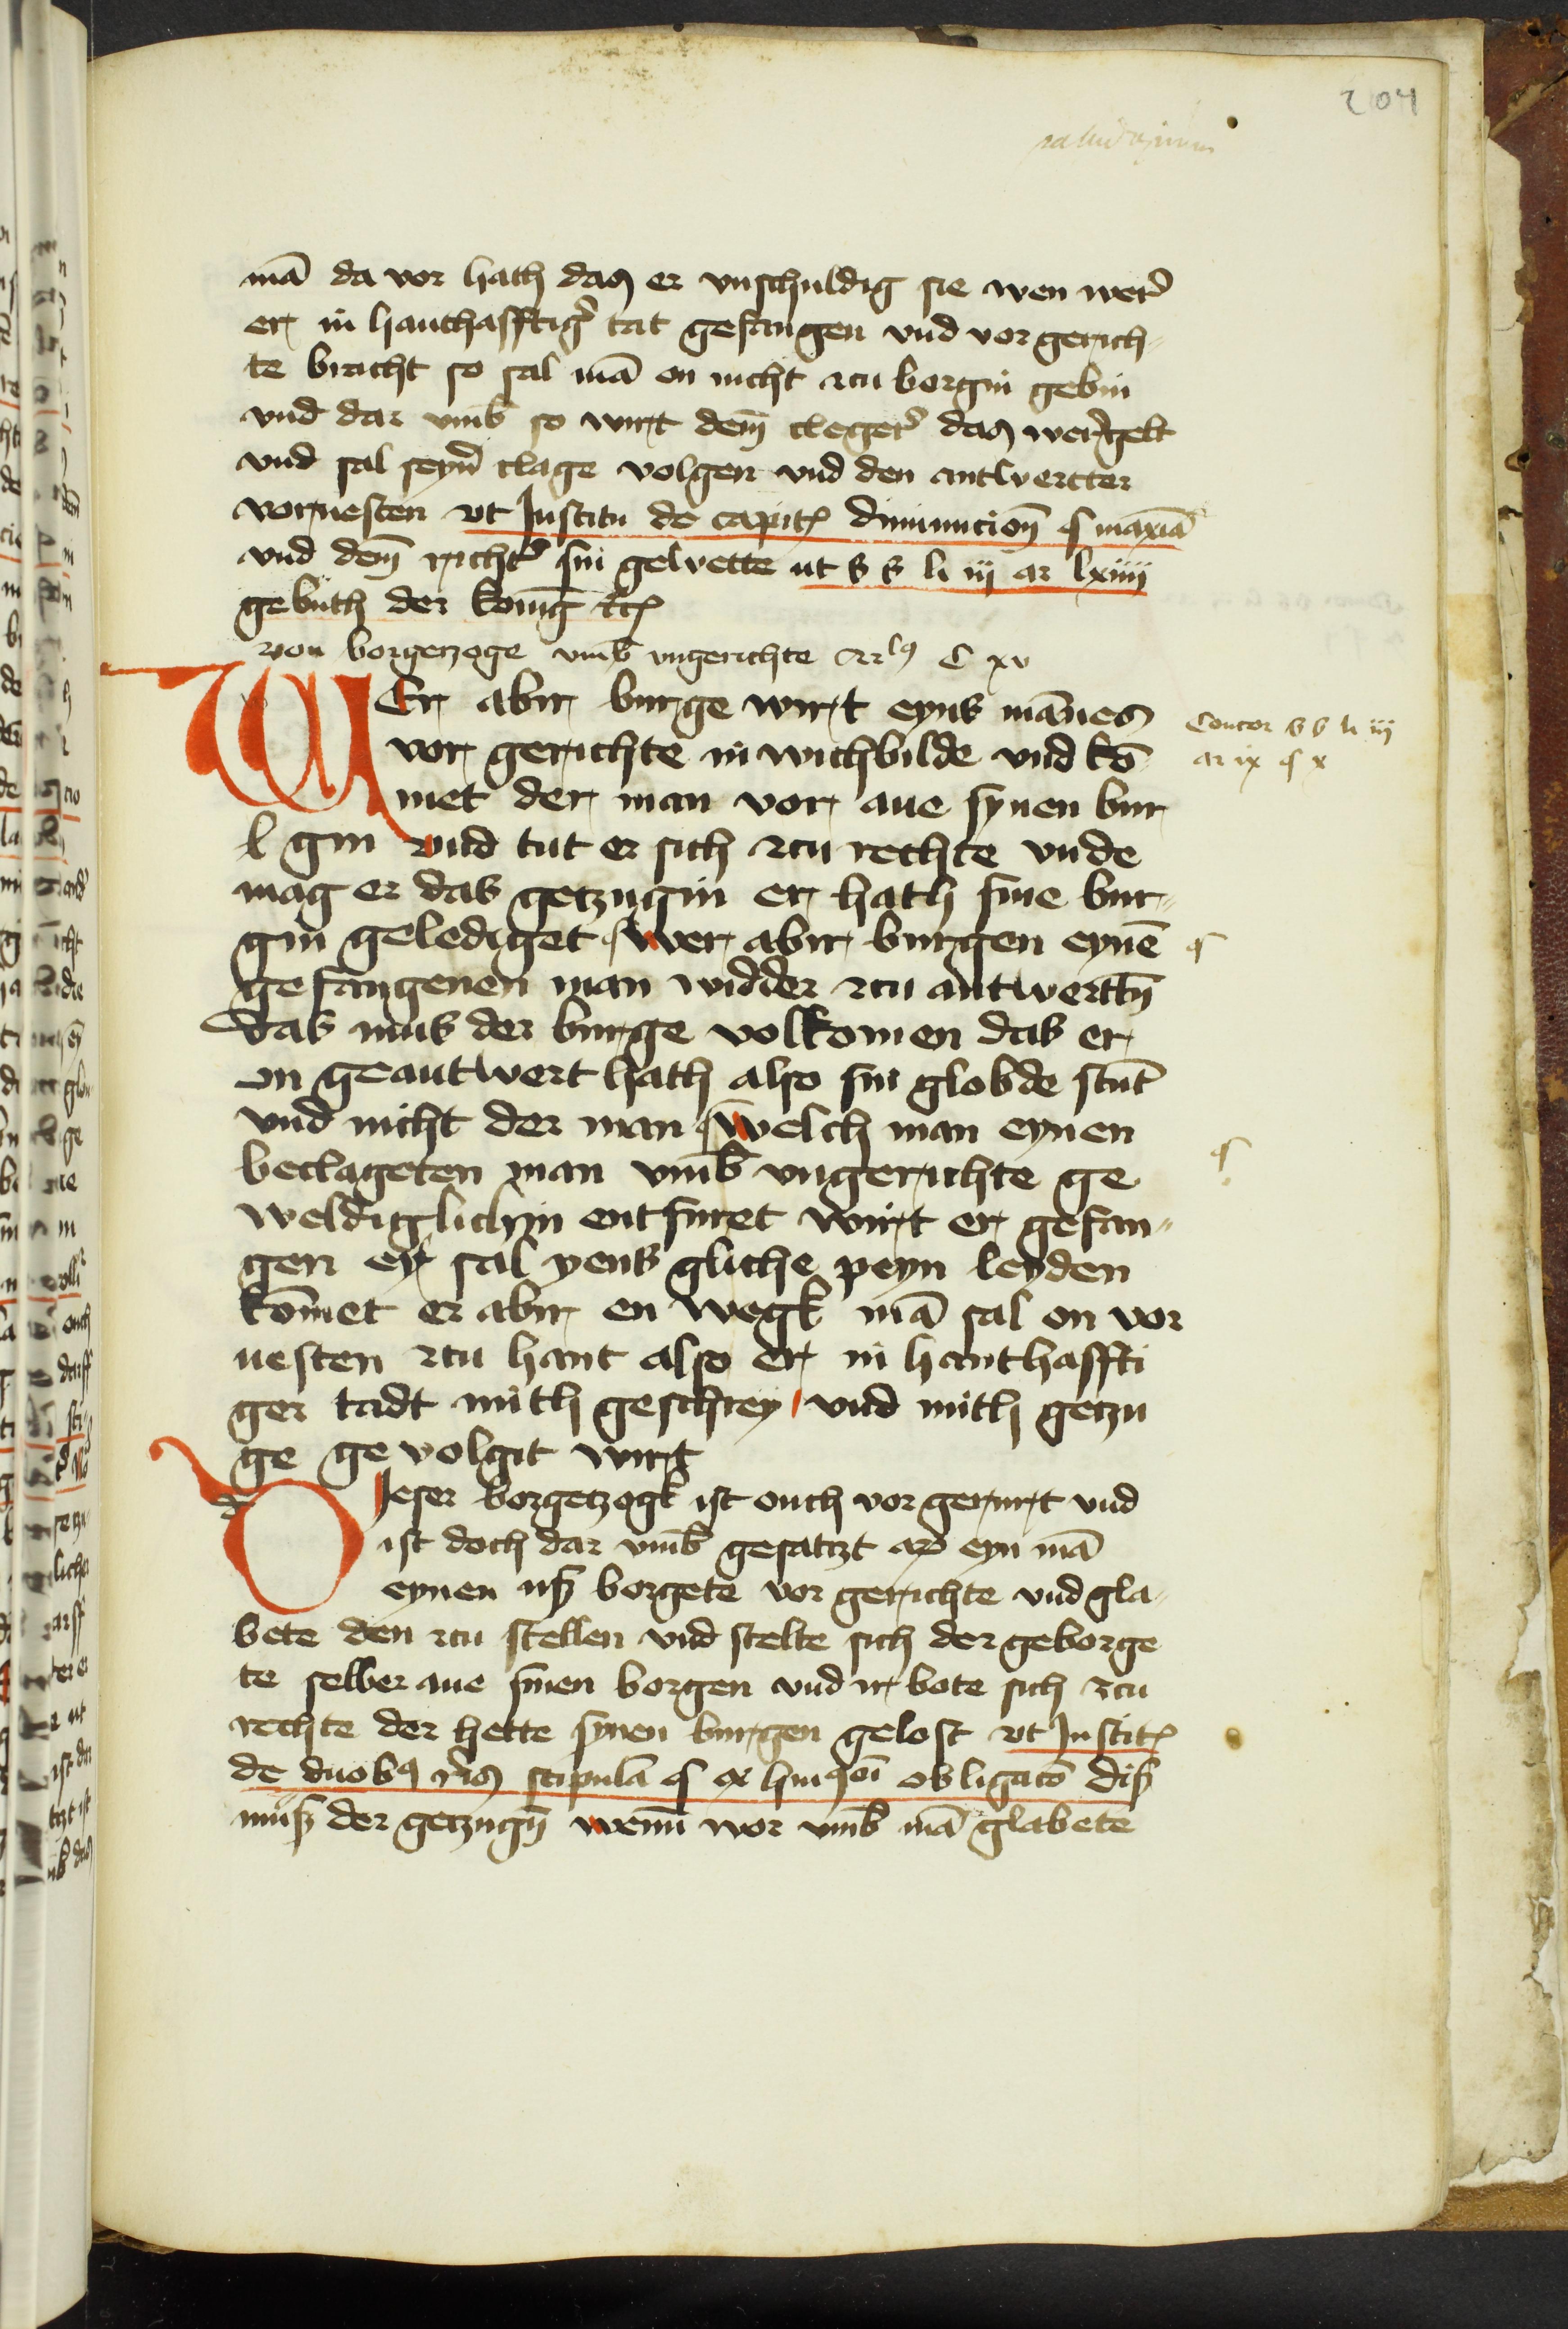 204
mā da vor hath das er vnschuldig sie wen werd
er in hanthafftig̉ tat gefangen vnd vor gerich-
te bracht so sal mā on nicht zcu borgin gebin
vnd dar vmb so wirt dem̄ cleger̉ das wergelt
vnd sal seyn̉ clage volgen vnd den antwertter
voruesten vt Institu de capit diminucion̄ § maxīa
vnd dem̄ richt̉ sin gewette ut s s li iij ar lxiiii
gebuth der koniḡ etc
von borgetzoge vmb vngerichte C xv
WEr abir burge wirt eyns mānes
vor gerichte in wichbilde vnd kō
met der man vor ane synen bur
gin vnd tut er sich zcu rechte vnde
mag er das getzugin er hath sine bur-
gin gelediget wer abir burgen eynē
gefangenen man widder zcu antwertt̄n
das mus der burge volkomen das er
on geantwert hath also sin globde stūt
vnd nicht der man welch man eynen
beclageten man vmb vngerichte ge
weldiglichin entfuret wirt er gefan-
gen er sal yens gliche peyn leyden
kōmet er abir en wegk mā sal on vor
uesten zcu hant also er in hanthaffti
ger tadt mith geschrey vnd mith getzu
ge ge volgit wirt
Concor s s li iij
ar ix § x
§
§
DIeser borgetzogk ist ouch vor gerurt vnd
ist doch dar vmb gesatzt ap eyn mā
eynen uß borgete vor gerichte vnd gla-
bete den zcu stellen vnd stelte sich der geborge
te selber ane sinen borgen vnd ir bote sich zcu
rechte der hette synen burgen gelost vt Instit
de duobꝰ r̉is stipula § ex huiꝰoi obligacō diß
muß der getzugn̄ wenn̄ wor vmb mā glabete